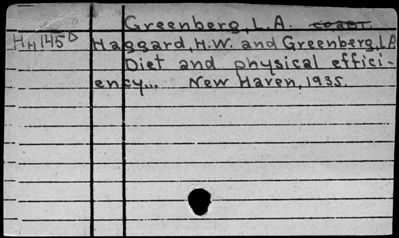 Greenberg, L.A.
HH145D Haggard, H.W. and Greenberg, L.A
Diet and physical effici-
ency... New Haven, 1935.